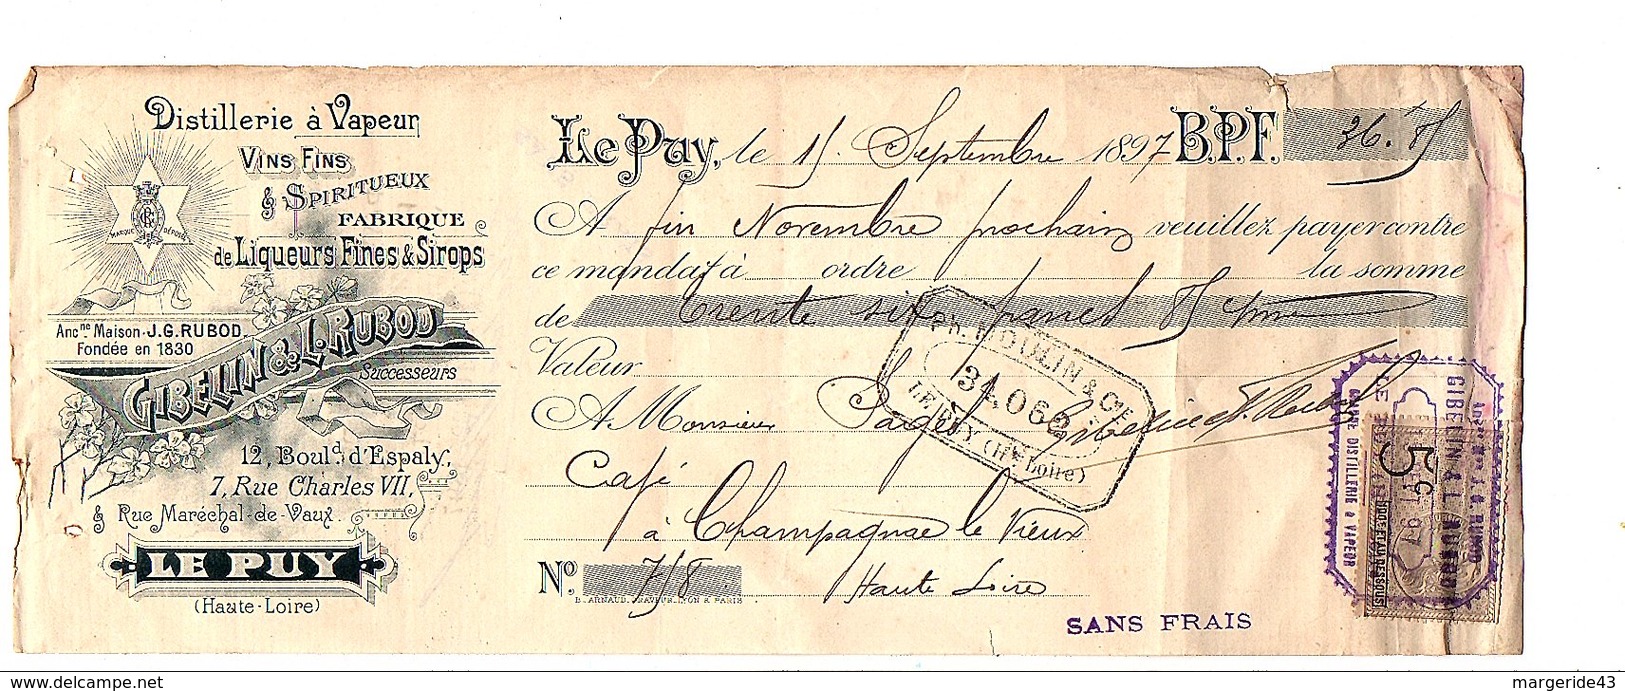 Distillerie à Vapeur
VINS FINS
& SPIRITUEUX
FABRIQUE
de Liqueurs Fines & Sirops
MARQUE DÉPOSÉE
Ancne Maison J.G. RUBOD
Fondée en 1830
GIBELIN & L. RUBOD
Successeurs
12, Boulд. d'Espaly,
7, Rue Charles VII,
& Rue Maréchal-de-Vaux.
LE PUY
(Haute-Loire)
Le Puy, le 15 Septembre 1897 B.P.F. 36.85
A fin Novembre prochain veuillez payer contre
ce mandat à ordre la somme
de Trente six francs 85
Valeur
A Monsieur
Café
à Champagnac le Vieux
No. 718 Haute Loire
B. ARNAUD, GRAVEUR, LYON & PARIS
SANS FRAIS
Ph. MOULIN & Cie
34066
LE PUY (Hte Loire)
GIBELIN & L. RUBOD
GRANDE DISTILLERIE à VAPEUR
5 c
margeride43
www.delcampe.net